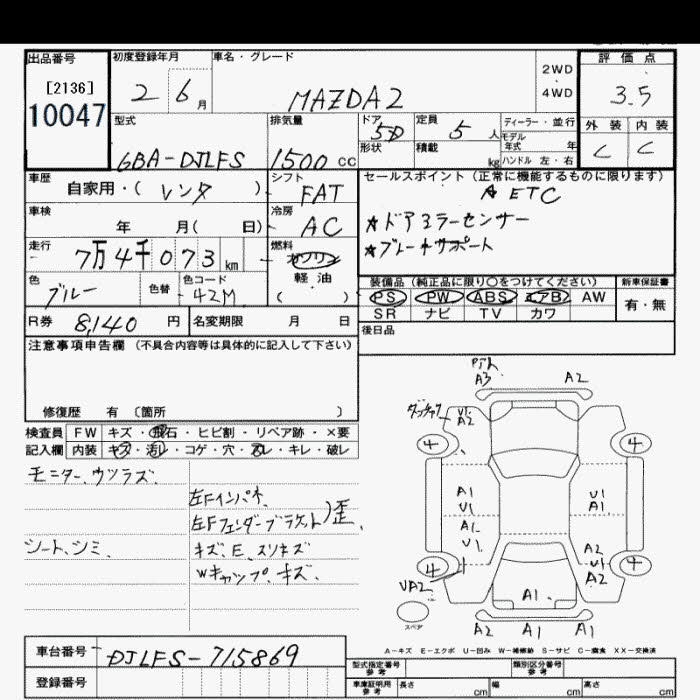 出品番号
[2136]
10047
初度登録年月
2 6月
車名・グレード
MAZDA2
2WD
4WD
評価点
3.5
外装 内装
C C
型式
6BA-DJLFS
排気量
1500 CC
ドア
5D
形状
定員
5 人
積載
kg
ディーラー・並行
モデル年式 年
ハンドル 左・右
車歴
自家用・( レンタ )
シフト
FAT
車検
年 月( 日)
冷房
AC
走行
7万4千073 km
燃料
ガソリン
軽・油
( )
色
ブルー
色替
色コード
42M
R券 8,140 円
名変期限 月 日
セールスポイント(正常に機能するものに限ります)
★ETC
★ドアミラーセンサー
★ブレーキサポート
装備品(純正品に限り○をつけてください)
PS PW ABS エアB AW
SR ナビ TV カワ
新車保証書
有・無
後日品
注意事項申告欄(不具合内容等は具体的に記入して下さい)
修復歴 有〔箇所 〕
検査員記入欄
FW キズ・飛石・ヒビ割・リペア跡・×要
内装 キズ・汚レ・コゲ・穴・スレ・キレ・破レ
モニター、ウツラズ
左Fインパネ
左Fフェンダーブラケット)歪
シート、シミ
キズ、E、スリキズ
Wキャップ、キズ
A3 A2
V1
A2
4 4
A1
U1
U1
A1
A1
U1
A2
U1
A2
4 4
UA2
A1
スペア
A2 A1 A1
A-キズ E-エクボ U-凹み W-補修跡 S-サビ C-腐食 XX-交換済
車台番号 DJLFS-715869
登録番号
型式指定番号 参考
類別区分番号 参考
車庫証明用 参考
長さ cm 幅 cm 高さ cm